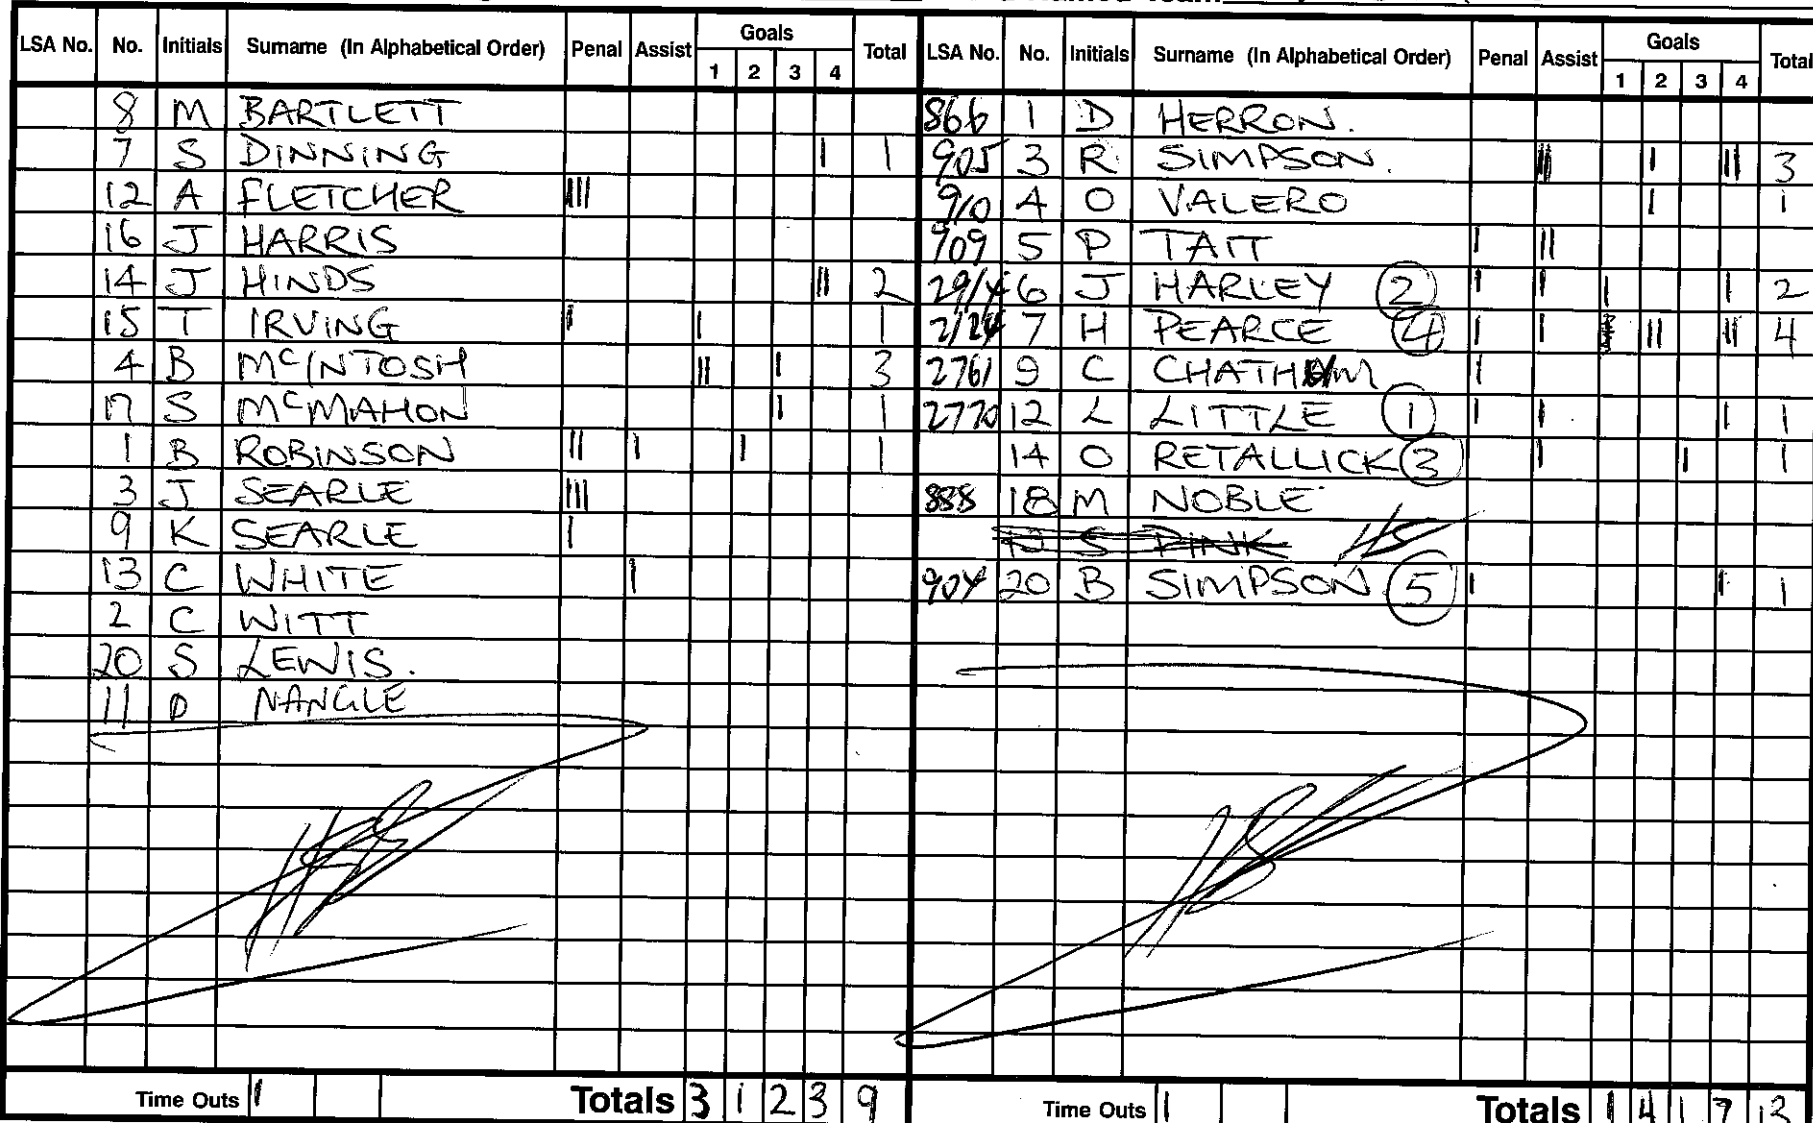 LSA No. No. Initials Surname (In Alphabetical Order) Penal Assist Goals 1 2 3 4 Total
8 M BARTLETT
7 S DINNING | 1
12 A FLETCHER |||
16 J HARRIS
14 J HINDS || 2
15 T IRVING | | 1
4 B McINTOSH || | 3
17 S McMAHON | 1
1 B ROBINSON || | | 1
3 J SEARLE |||
9 K SEARLE |
13 C WHITE |
2 C WITT
20 S LEWIS.
11 D NANGLE
Time Outs 1 Totals 3 1 2 3 9
LSA No. No. Initials Surname (In Alphabetical Order) Penal Assist Goals 1 2 3 4 Total
866 1 D HERRON.
905 3 R SIMPSON. ||| | || 3
910 4 O VALERO | 1
909 5 P TAIT | ||
6 J HARLEY 2 | | | | 2
7 H PEARCE 4 | | || || 4
2761 9 C |
2770 12 L LITTLE 1 | | | 1
14 O RETALLICK 3 | | 1
888 18 M NOBLE
S PINK
904 20 B SIMPSON 5 | | 1
Time Outs 1 Totals 1 4 1 7 13